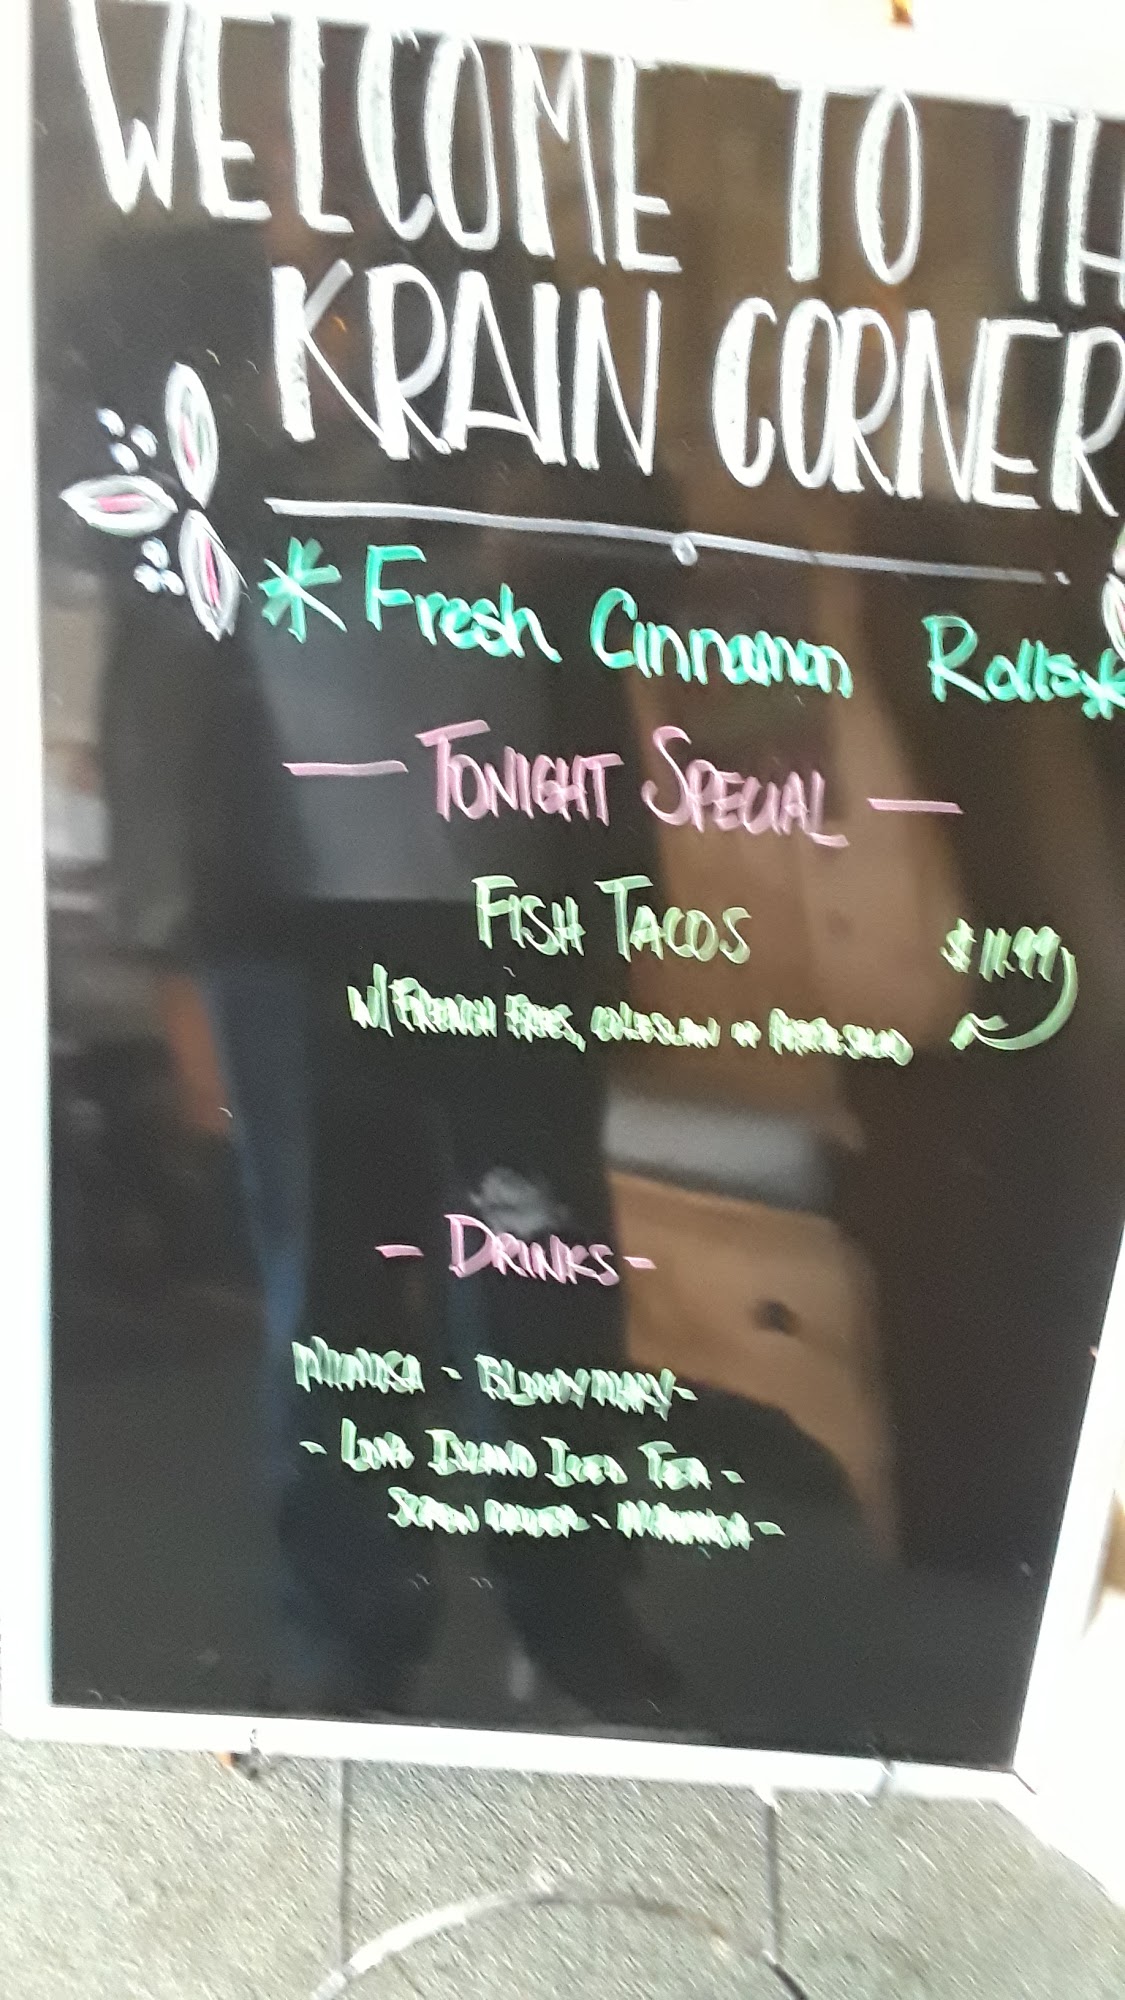 WELCOME TO TH
KRAIN CORNER
* Fresh Cinnamon Rolls *
— TONIGHT SPECIAL —
FISH TACOS $11.99
W/ FRENCH FRIES, COLESLAW or
- DRINKS -
MIMOSA - BLOODY MARY -
- LONG ISLAND ICED TEA -
SCREW DRIVER - -